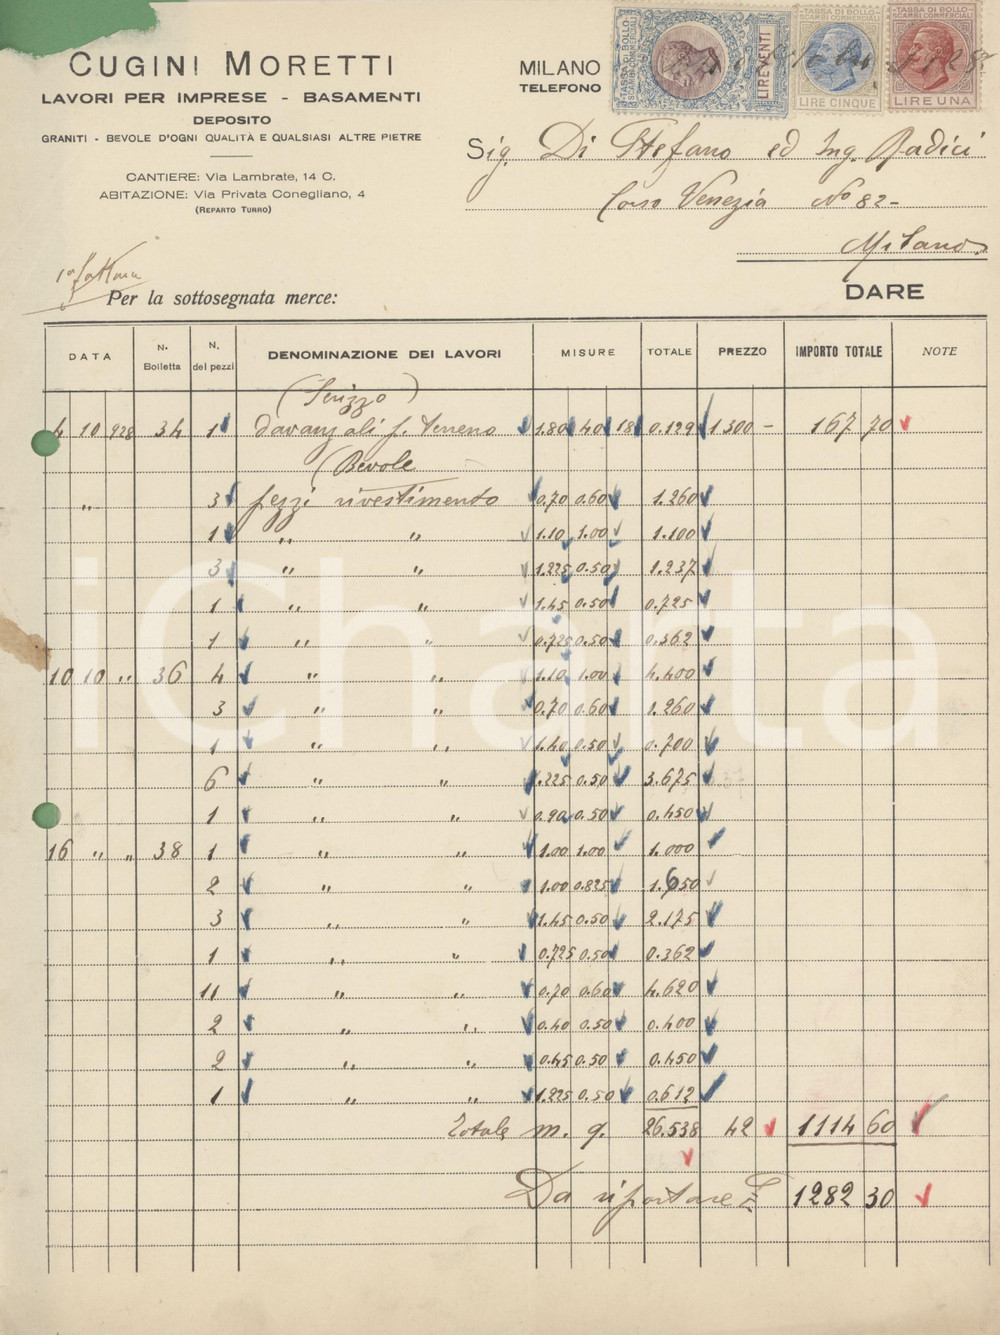 CUGINI MORETTI
LAVORI PER IMPRESE - BASAMENTI
DEPOSITO
GRANITI - BEVOLE D'OGNI QUALITÀ E QUALSIASI ALTRE PIETRE
CANTIERE: Via Lambrate, 14 C.
ABITAZIONE: Via Privata Conegliano, 4
(REPARTO TURRO)
MILANO
TELEFONO
TASSA DI BOLLO SCAMBI COMMERCIALI LIRE VENTI
TASSA DI BOLLO SCAMBI COMMERCIALI LIRE CINQUE
TASSA DI BOLLO SCAMBI COMMERCIALI LIRE UNA
Sig. Di Stefano ed Ing. Radici
Corso Venezia No 82-
Milano
1a fattura
Per la sottosegnata merce:
DARE
DATA N. Bolletta N. dei pezzi DENOMINAZIONE DEI LAVORI MISURE TOTALE PREZZO IMPORTO TOTALE NOTE
(Serizzo)
4 10 928 34 1 davanzali p. terreno 1.80 40 18 0.129 1300 - 167 70
(Bevole
" 3 pezzi rivestimento 0.70 0.60 1.260
1 " " 1.10 1.00 1.100
3 " " 1.225 0.50 1.237
1 " " 1.45 0.50 0.725
1 " " 0.725 0.50 0.362
10 10 " 36 4 " " 1.10 1.00 4.400
3 " " 0.70 0.60 1.260
1 " " 1.40 0.50 0.700
6 " " 1.225 0.50 3.675
1 " " 0.90 0.50 0.450
16 " " 38 1 " " 1.00 1.00 1.000
2 " " 1.00 0.825 1.650
3 " " 1.45 0.50 2.175
1 " " 0.725 0.50 0.362
11 " " 0.70 0.60 4.620
2 " " 0.40 0.50 0.400
2 " " 0.45 0.50 0.450
1 " " 1.225 0.50 0.612
Totale m. q. 26.538 42 1114 60
Da riportare £ 1282 30
iCharta